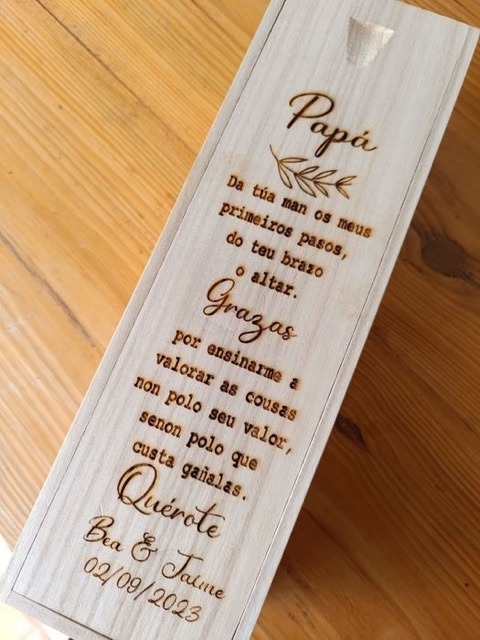 Papá
Da túa man os meus
primeiros pasos,
do teu brazo
o altar.
Grazas
por ensinarme a
valorar as cousas
non polo seu valor,
senon polo que
custa gañalas.
Quérote
Bea & Jaime
02/09/2023